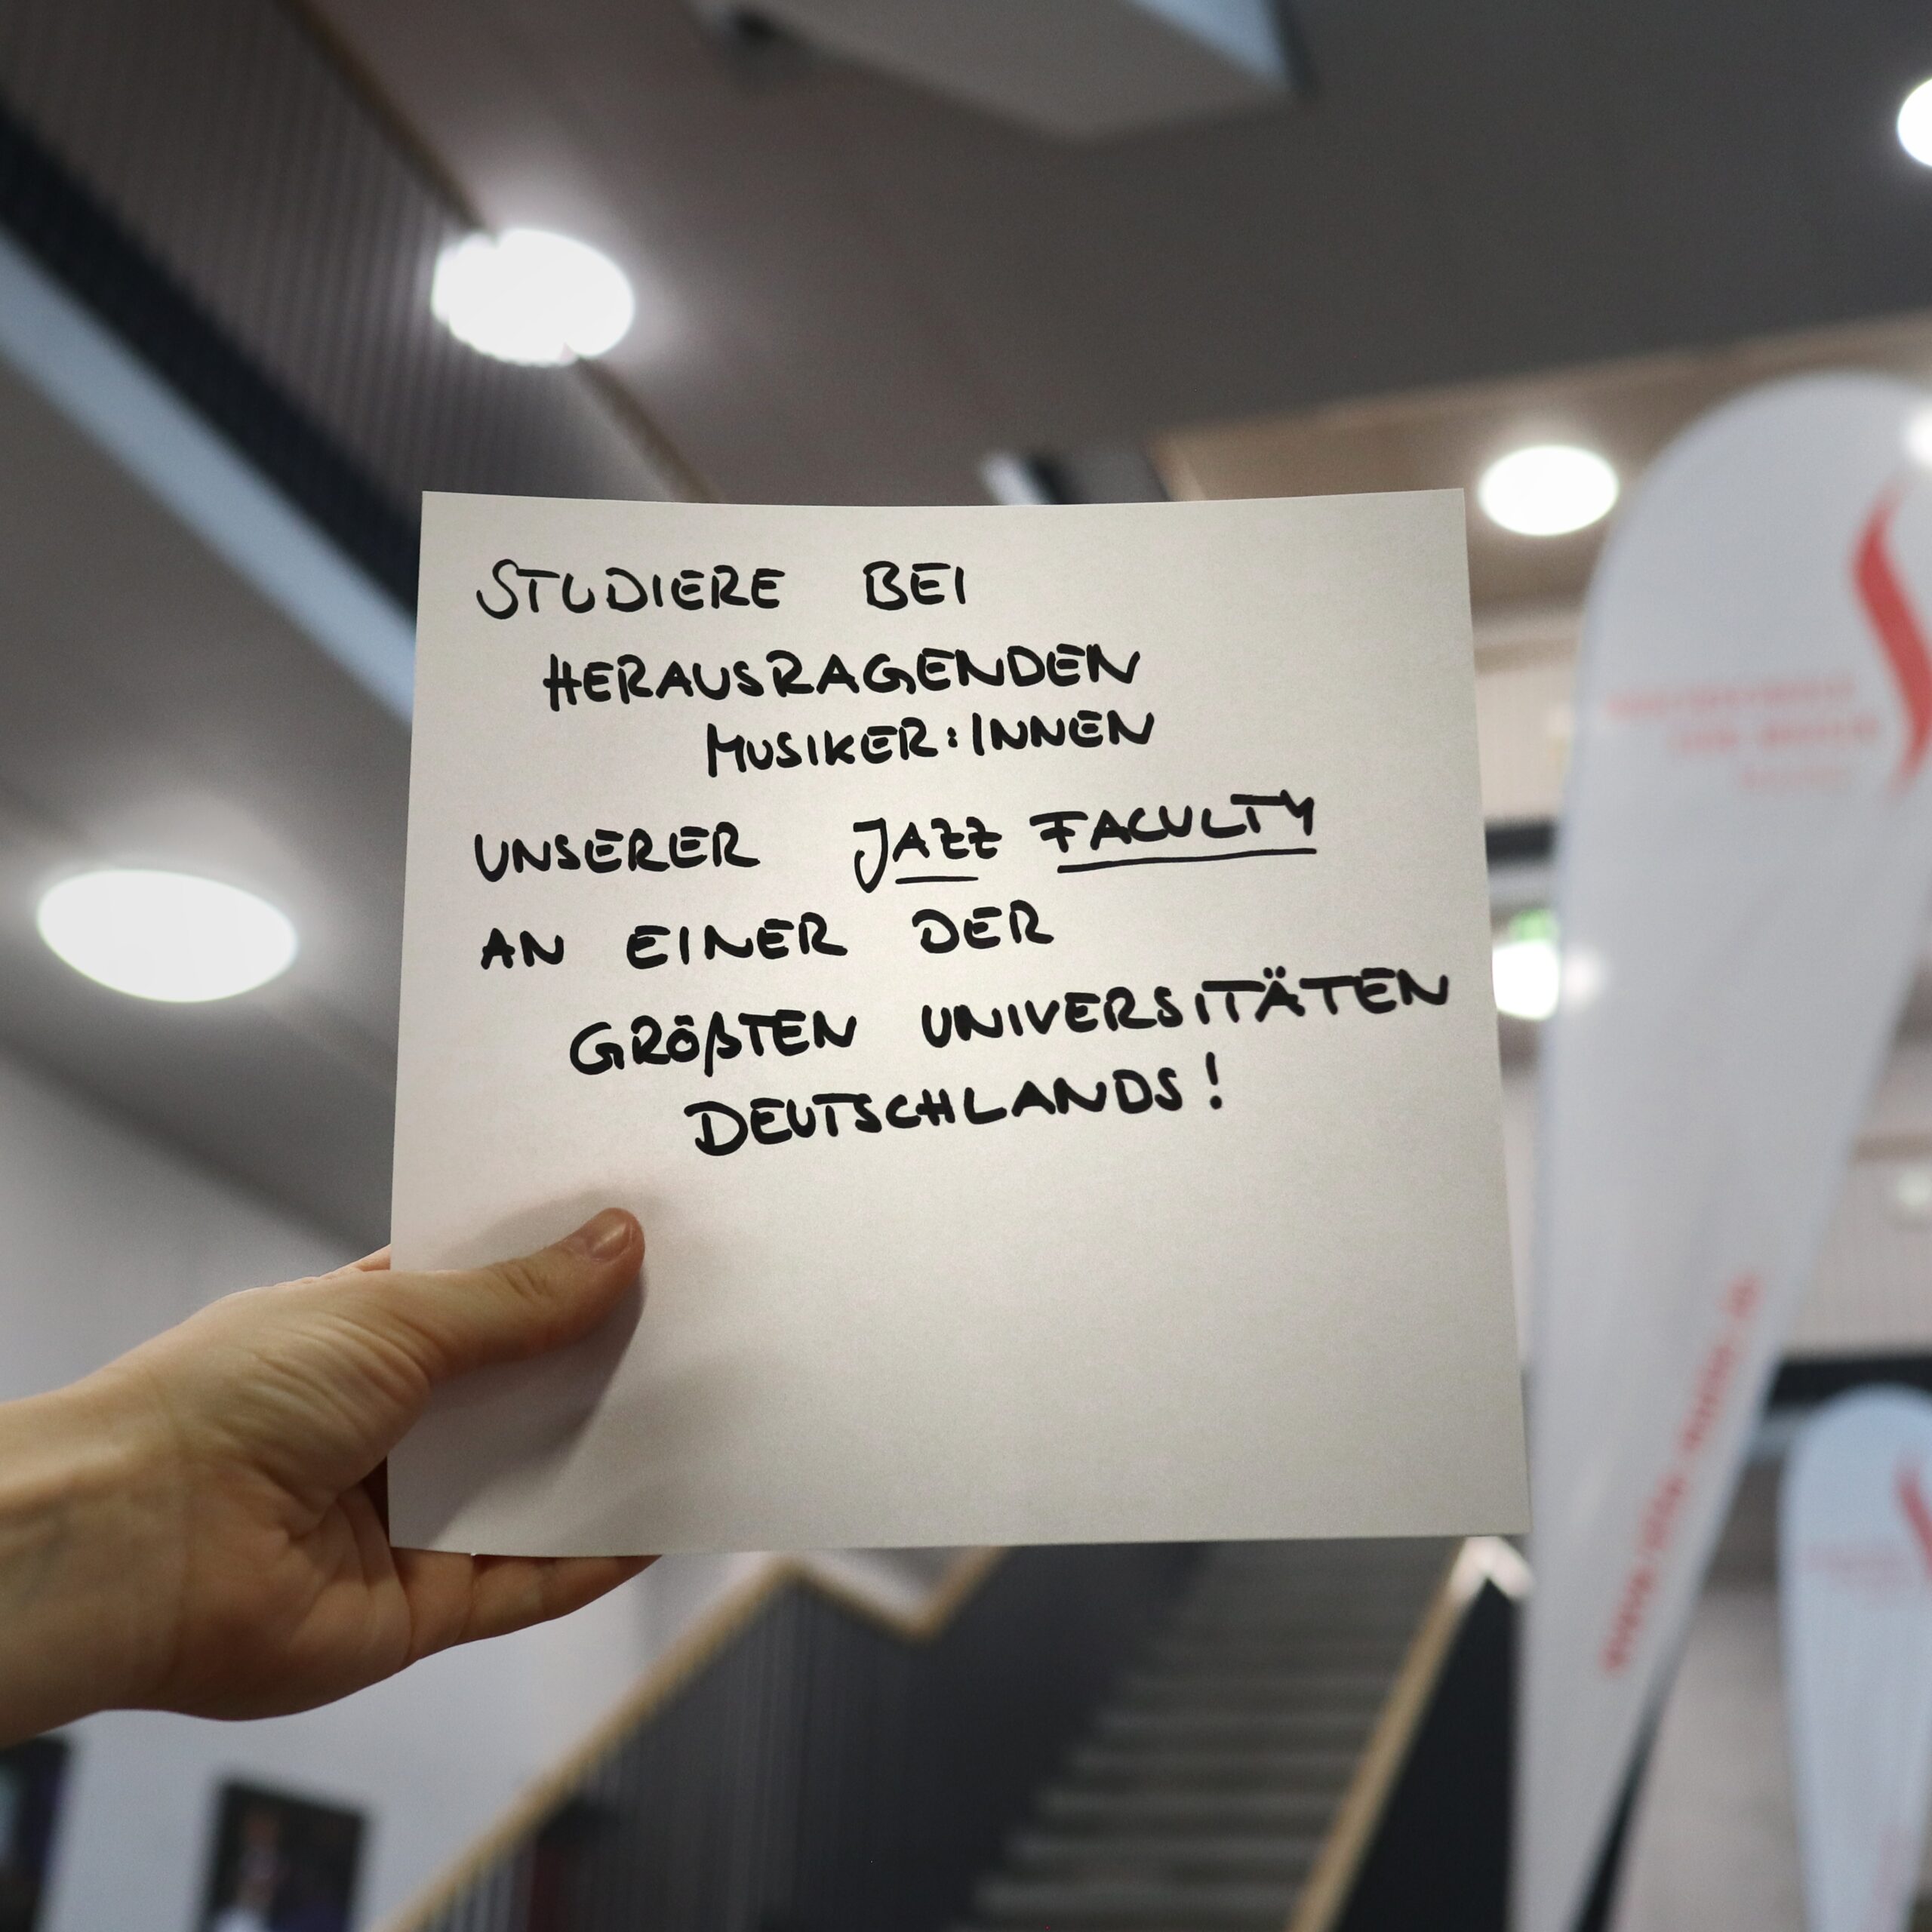 STUDIERE BEI
HERAUSRAGENDEN
MUSIKER:INNEN
UNSERER JAZZ FACULTY
AN EINER DER
GRÖßTEN UNIVERSITÄTEN
DEUTSCHLANDS!